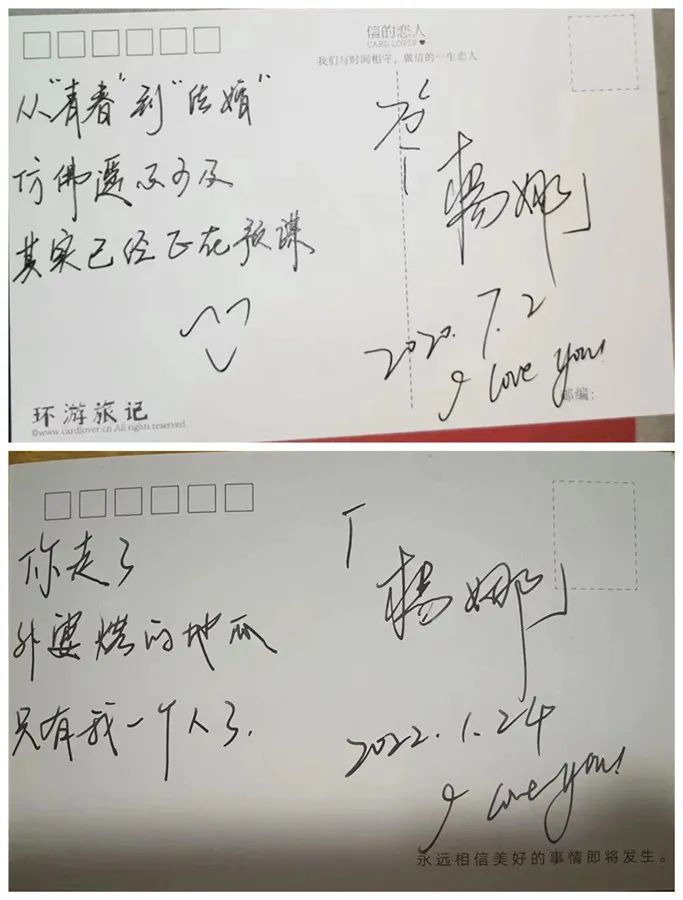 信的恋人
CARD LOVER
我们与时间相守，做信的一生恋人
从“青春”到“结婚”
仿佛遥不可及
其实已经正在预谋
给
「杨娜」
2020.7.2
I love you!
邮编：
环游旅记
©www.cardlover.cn All rights reserved.
你走了
外婆烘的地瓜
只有我一个人了.
「杨娜」
2022.1.24
I love you!
永远相信美好的事情即将发生。